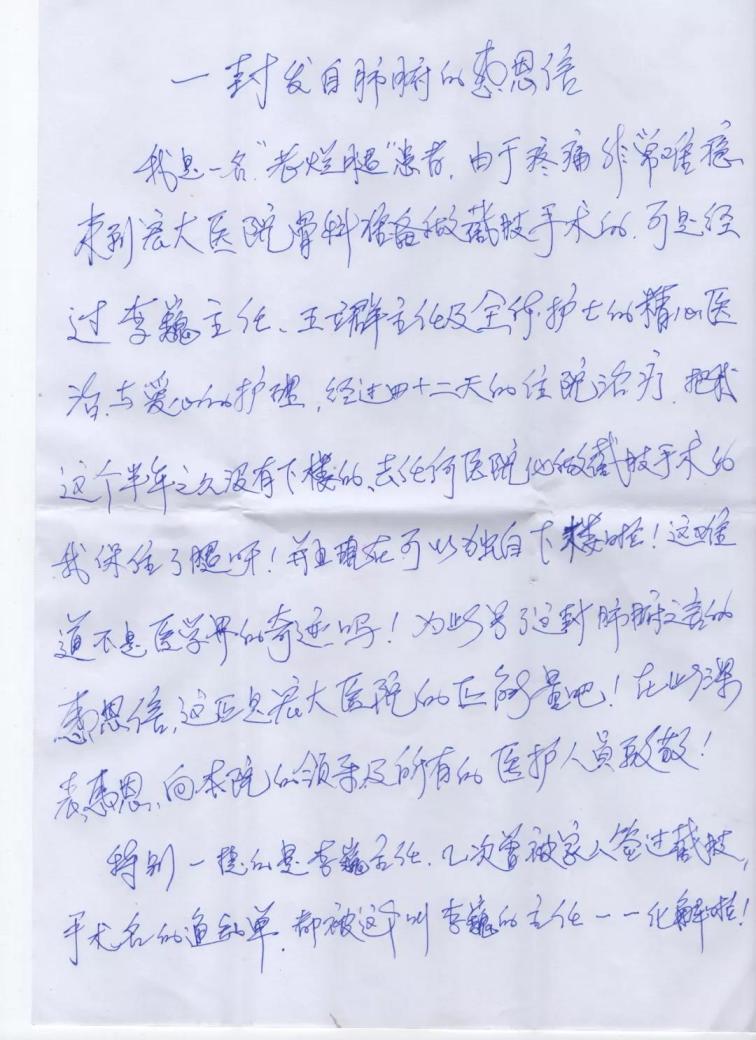 一封发自肺腑的感恩信
我是一名“老烂腿”患者，由于疼痛非常难忍
来到宏大医院骨科准备做截肢手术的，可是经
过李巍主任、王立群主任及全体护士的精心医
治与爱心的护理，经过四十二天的住院治疗，把我
这个半年之久没有下楼的、去任何医院他做截肢手术的
我保住了腿呀！并且现在可以独自下楼啦！这难
道不是医学界的奇迹吗！为此写了这封肺腑之言的
感恩信，这正是宏大医院的正能量吧！在此深
表感恩、向本院的领导及所有的医护人员致敬！
特别一提的是李巍主任，几次曾被家人签过截肢，
手术名的通知单，都被这个叫李巍的主任一一化解啦！